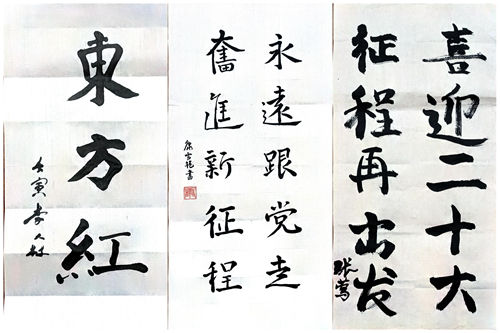 東方紅
壬寅
永遠跟党走
奮進新征程
喜迎二十大
征程再出发
张莺